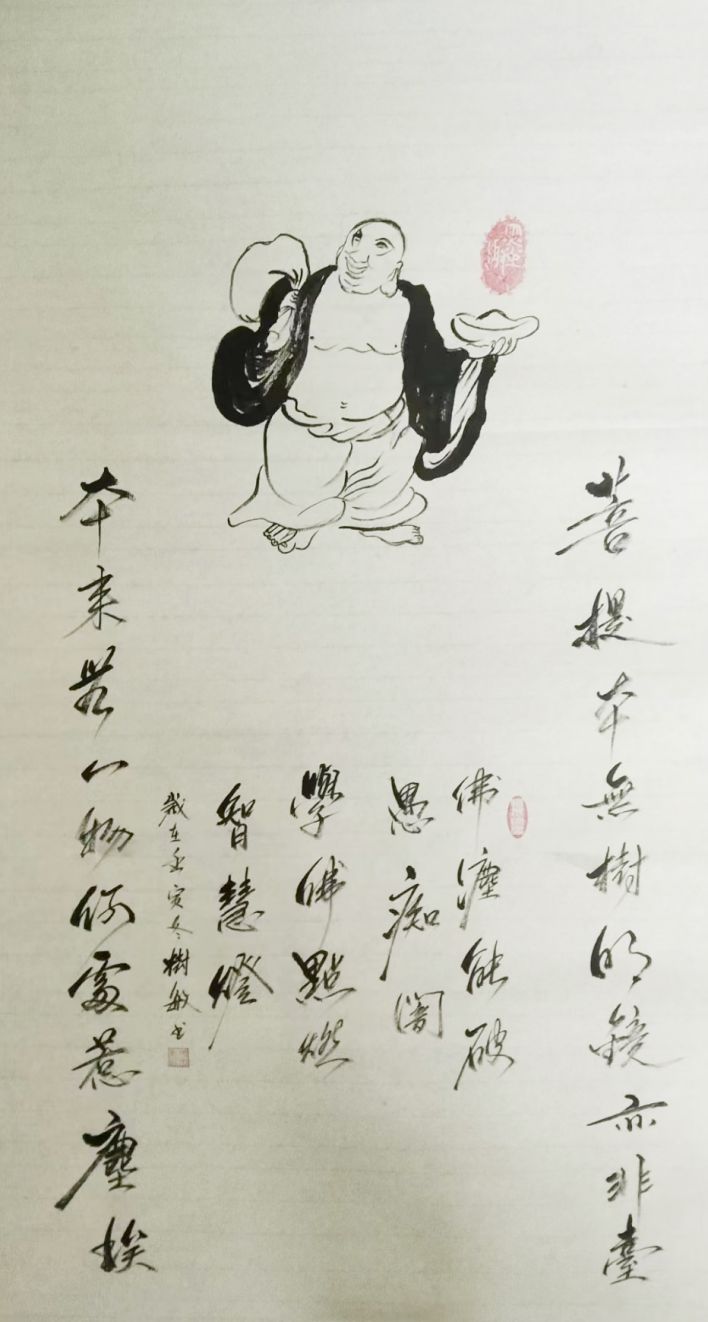 菩提本無樹明鏡亦非臺
佛灋能破
愚痴闇
學佛點燃
智慧燈
歲在壬寅冬樹敏书
本来無一物何處惹塵埃